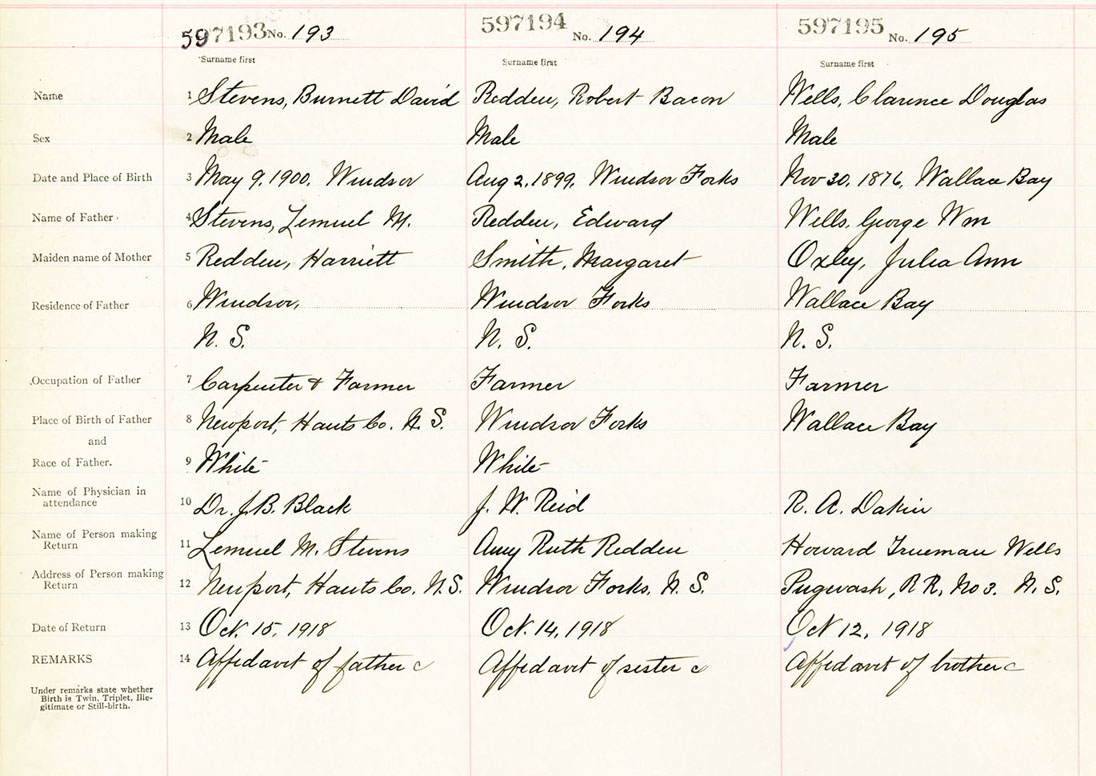 597193 No. 193 597194 No. 194 597195 No. 195
Surname first Surname first Surname first
Name 1 Stevens, Burnett David Redden, Robert Bacon Wells, Clarence Douglas
Sex 2 Male Male Male
Date and Place of Birth 3 May 9, 1900, Windsor Aug 2, 1899, Windsor Forks Nov 30, 1876, Wallace Bay
Name of Father 4 Stevens, Lemuel M. Redden, Edward Wells, George Wm
Maiden name of Mother 5 Redden, Harriett Smith, Margaret Oxley, Julia Ann
Residence of Father 6 Windsor, Windsor Forks Wallace Bay
N. S. N. S. N. S.
Occupation of Father 7 Carpenter & Farmer Farmer Farmer
Place of Birth of Father 8 Newport, Hants Co. N. S. Windsor Forks Wallace Bay
and
Race of Father. 9 White White
Name of Physician in
attendance 10 Dr. J. B. Black J. W. Reid R. A. Dakin
Name of Person making
Return 11 Lemuel M. Stevens Amy Ruth Redden Howard Trueman Wells
Address of Person making
Return 12 Newport, Hants Co. N. S. Windsor Forks, N. S. Pugwash, R R, No 3. N. S.
Date of Return 13 Oct. 15, 1918 Oct. 14, 1918 Oct 12, 1918
REMARKS 14 Affidavit of father c Affidavit of sister c Affidavit of brother c
Under remarks state whether
Birth is Twin, Triplet, Ille-
gitimate or Still-birth.